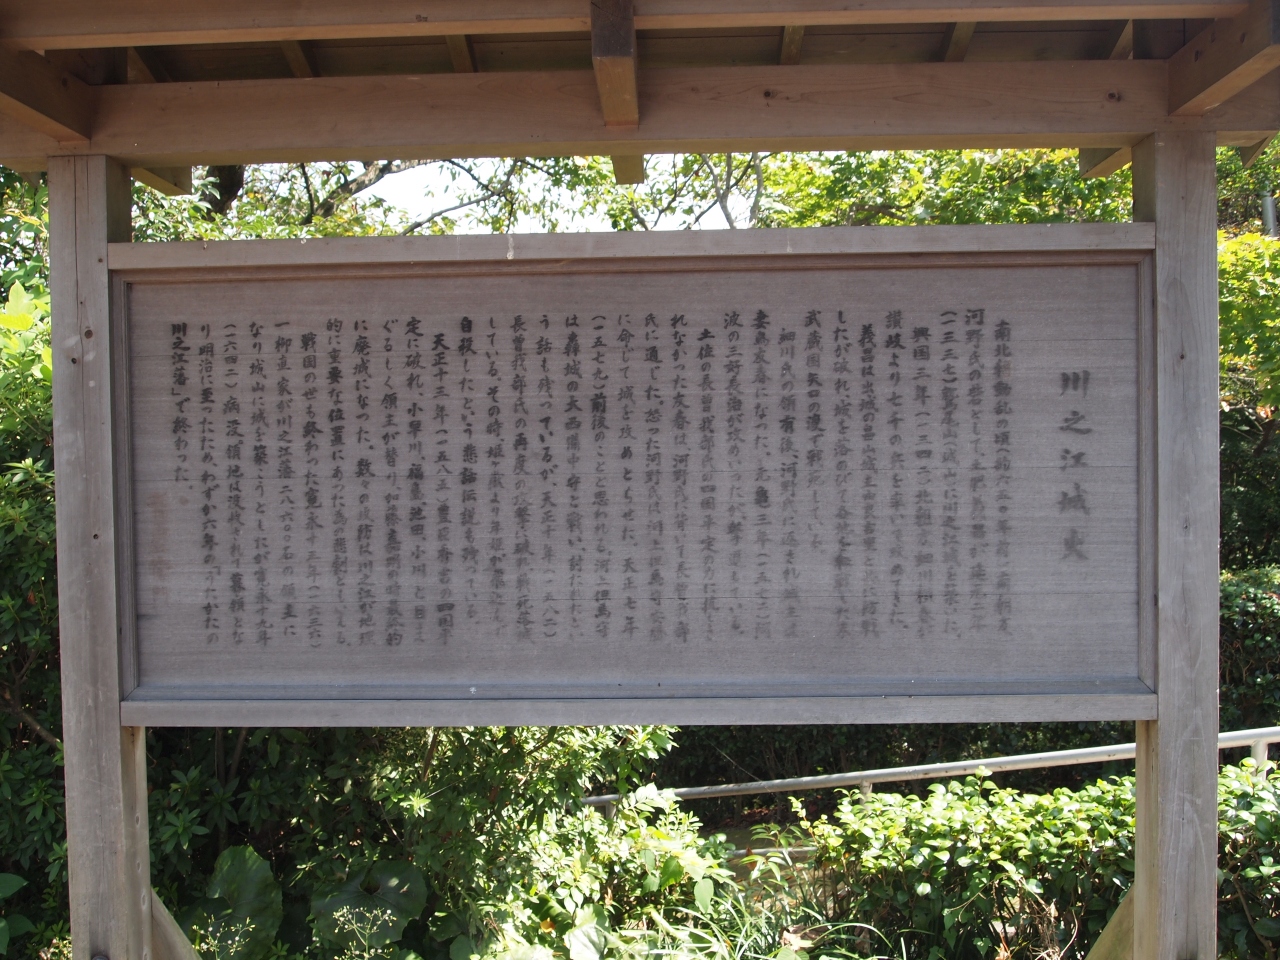 川之江城史
南北朝動乱の頃（約六五〇年前）南朝方
河野氏の砦として、土肥義昌が延元二年
（一三三七）鷲尾山（城山）に川之江城を築いた。
興国三年（一三四二）北朝方細川頼春が
讃岐より七千の兵を率いて攻めてきた。
義昌は
したが破れ、城を落のびて
武蔵国矢口の渡で戦死している。
細川氏の領有後、河野氏に返され城主は
妻鳥友春になった。元亀三年（一五七二）阿
波の三好長治が攻め入ったが、撃退している。
土佐の長曽我部氏の四国平定の力に抗しき
れなかった友春は、河野氏に背いて長曽我部
氏に通じた。怒った河野氏は河上但馬守安勝
に命じて城を攻めとらせた。天正七年
（一五七九）前後のことと思われる。河上但馬守
は轟城の大西備中守と戦い、討たれたとい
う話も残っているが、天正十年（一五八二）
長曽我部氏の再度の攻撃に破れ討死落城
している。その時、姫ヶ嶽より年姫が飛込んで
自殺したという悲話伝説も残っている。
天正十三年（一五八五）豊臣秀吉の四国平
定に破れ、小早川、福島、池田、小川と目ま
ぐるしく領主が替り、加藤嘉明の時最終的
に廃城になった。数々の攻防は川之江が地理
的に重要な位置にあった為の悲劇ともいえる。
戦国の世も終わった寛永十三年（一六三六）
一柳直家が川之江藩二八六〇〇石の領主に
なり城山に城を築こうとしたが寛永十九年
（一六四二）病没、領地は没収されり幕領とな
り明治に至ったため、わずか六年の「うたかたの
川之江藩」で終わった。